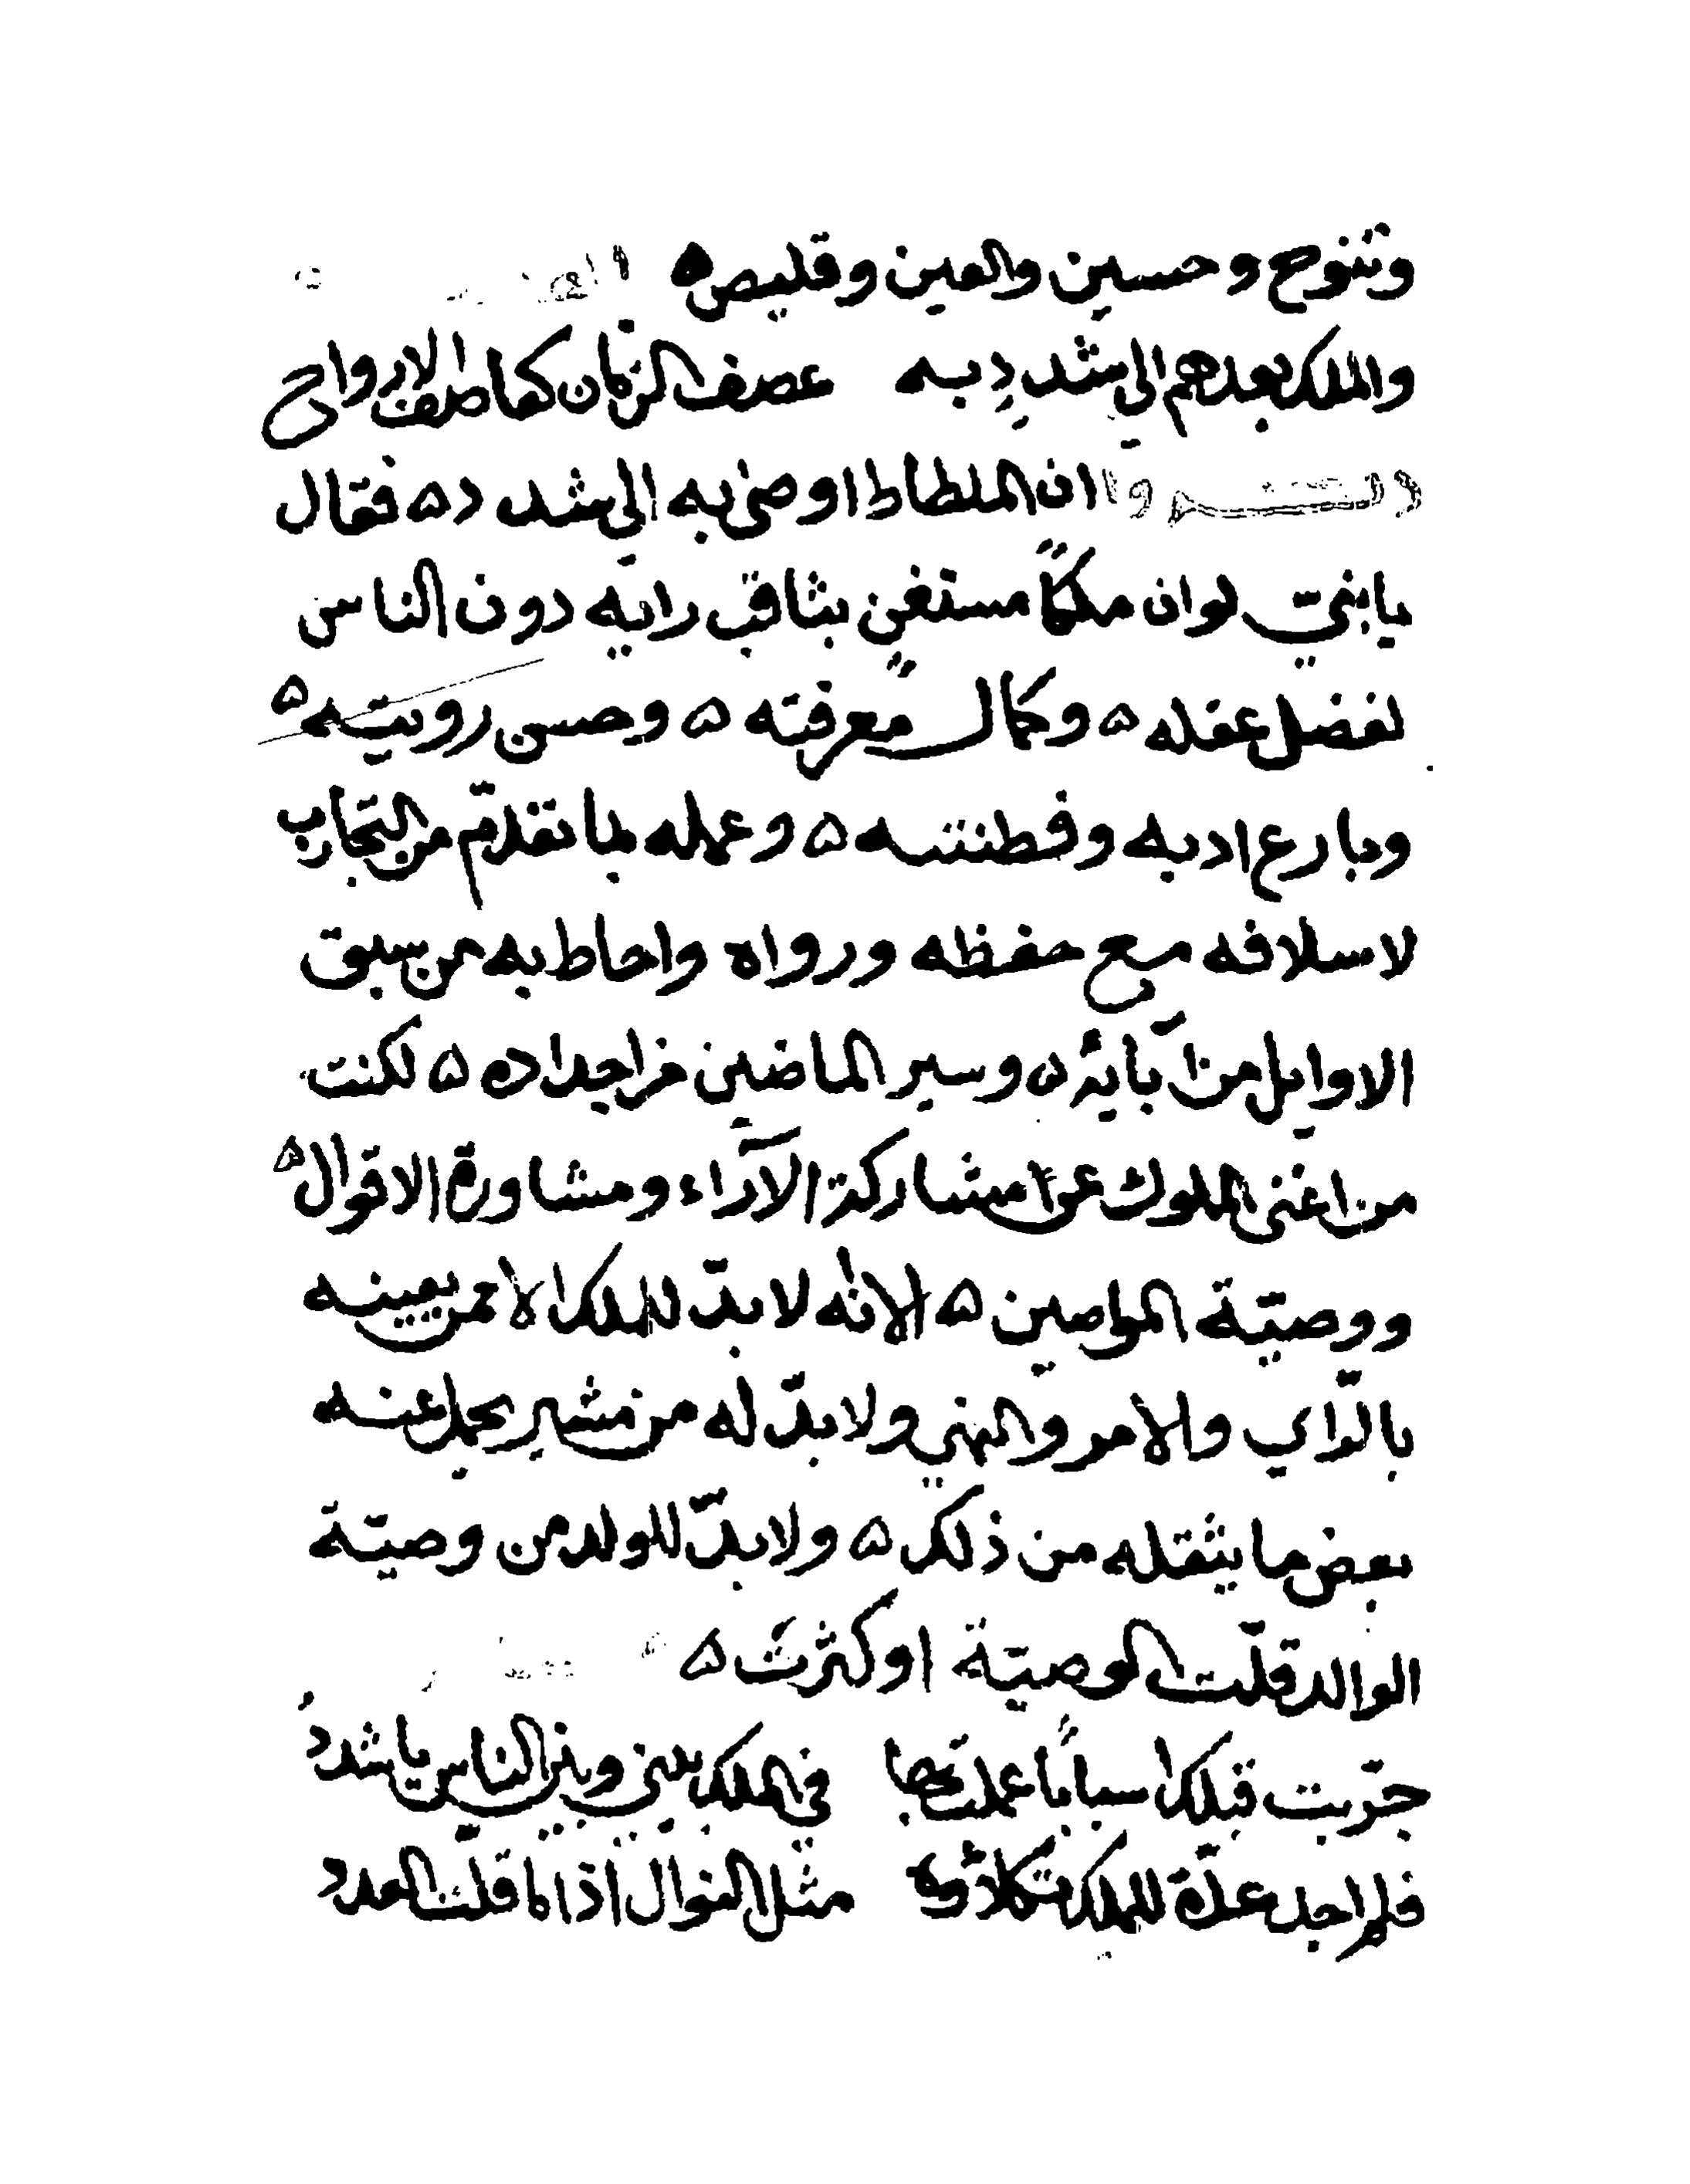 وتنوح وحسين والعين وقليص ه
والملك بعدهم الى شدد به عصف الزمان كما صف الارواح
وا ان الملطاط اوصى به الى شدد ه فقال
يا بني لو ان ملكًا مستغني بثاقب رايه دون الناس
لفضل عقله ه وكمال معرفته ه وحسن رويته ه
وبارع ادبه وفطنته ه وعمله بما تقدّم من التجارب
لاسلافه مع حفظه ورواه واحاط به من سبق
الاوايل من آبائه وسير الماضين من اجداده ه لكنت
من اغنى الملوك عن مشاركة الآراء ومشاورة الاقوال ه
ووصيّة المواصين ه الا انّه لا بدّ للملك الا من يعينه
بالرّاي والامر والنهي ولا بدّ له من مشير يحمل عنه
بعض ما يثقله من ذلك ه ولا بدّ للولد من وصيّة
الوالد قلّت الوصيّة او كثرت ه
جرّبت قبلك اسبابًا عملت بها في الملك بيني وبين الناس يا شددُ
فلم اجد عدّة للملك مثل النوال اذا ما قلت العدد